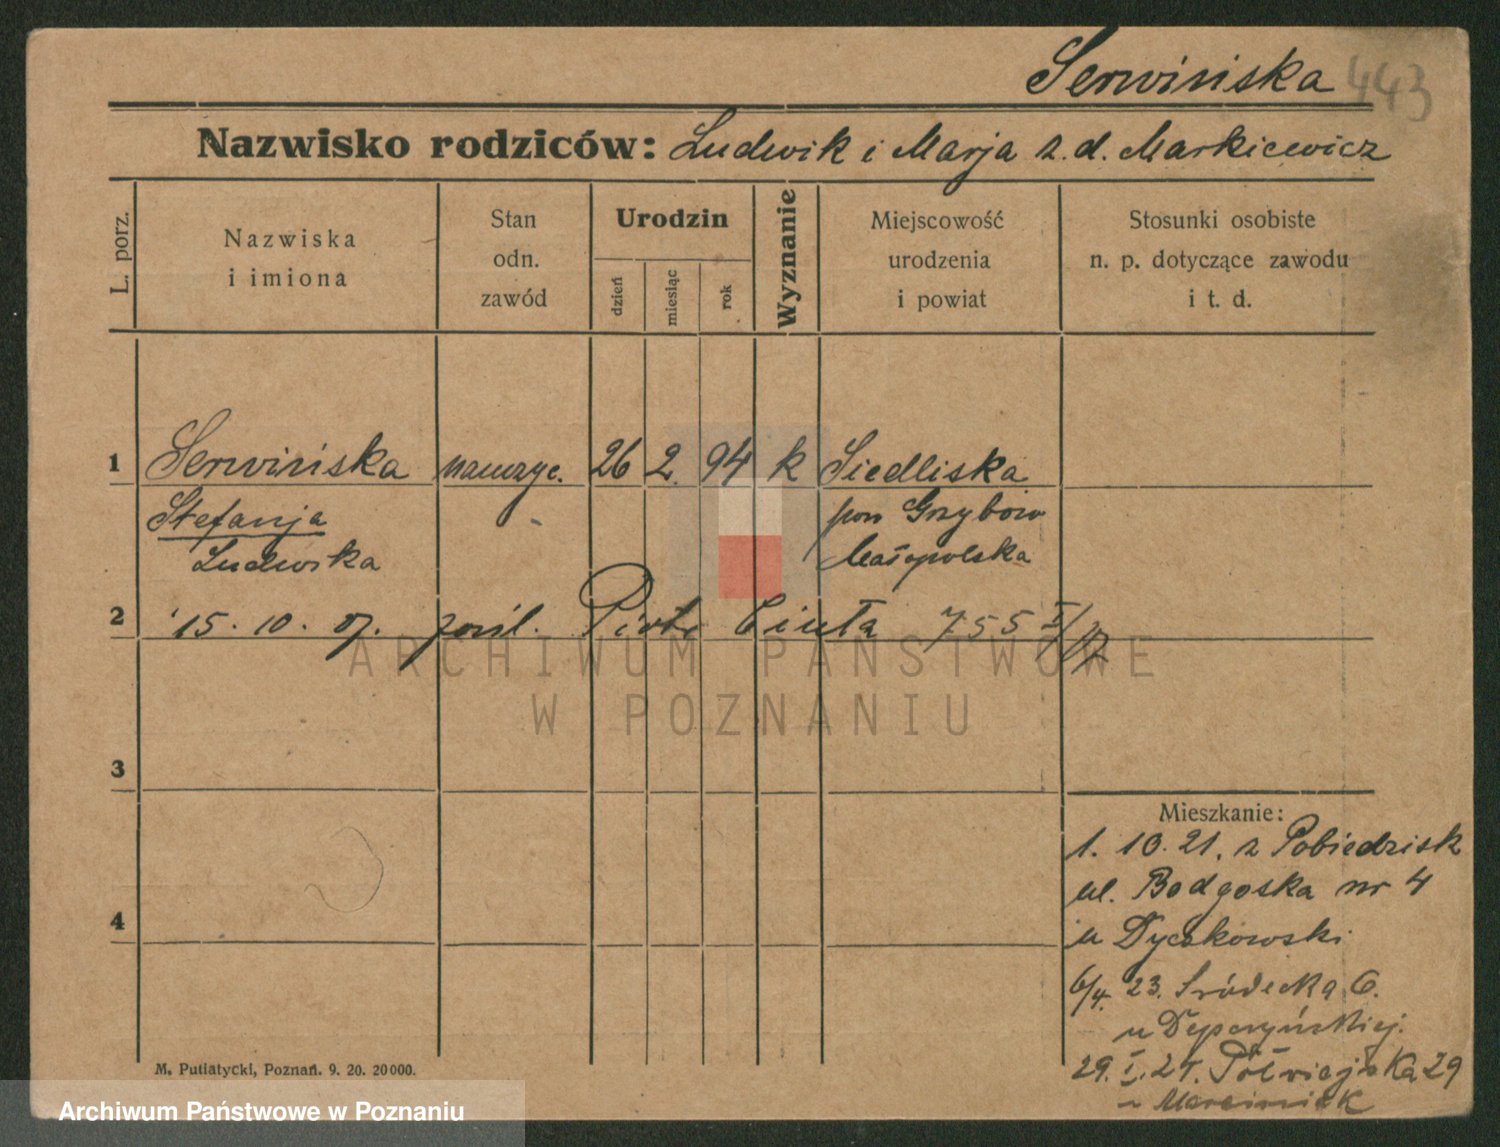 Serwińska 443
Nazwisko rodziców: Ludwik i Marja z. d. Markiewicz
L. porz.
Nazwiska
i imiona
Stan
odn.
zawód
Urodzin
dzień
miesiąc
rok
Wyznanie
Miejscowość
urodzenia
i powiat
Stosunki osobiste
n. p. dotyczące zawodu
i t. d.
1 Serwińska nauczyc. 26 2. 94 k Siedliska
Stefanja pow Grybów
Ludwika Małopolska
2 15. 10. 07. Piotr 755
ARCHIWUM PAŃSTWOWE
W POZNANIU
3
Mieszkanie:
1. 10. 21. z Pobiedzisk
ul. Bodgoska nr 4
4
u Dyczkowski
6/4. 23. Śródecka 6.
u
29. I. 24. Półwiejska 29
u Marciniak
M. Putiatycki, Poznań. 9. 20. 20000.
Archiwum Państwowe w Poznaniu